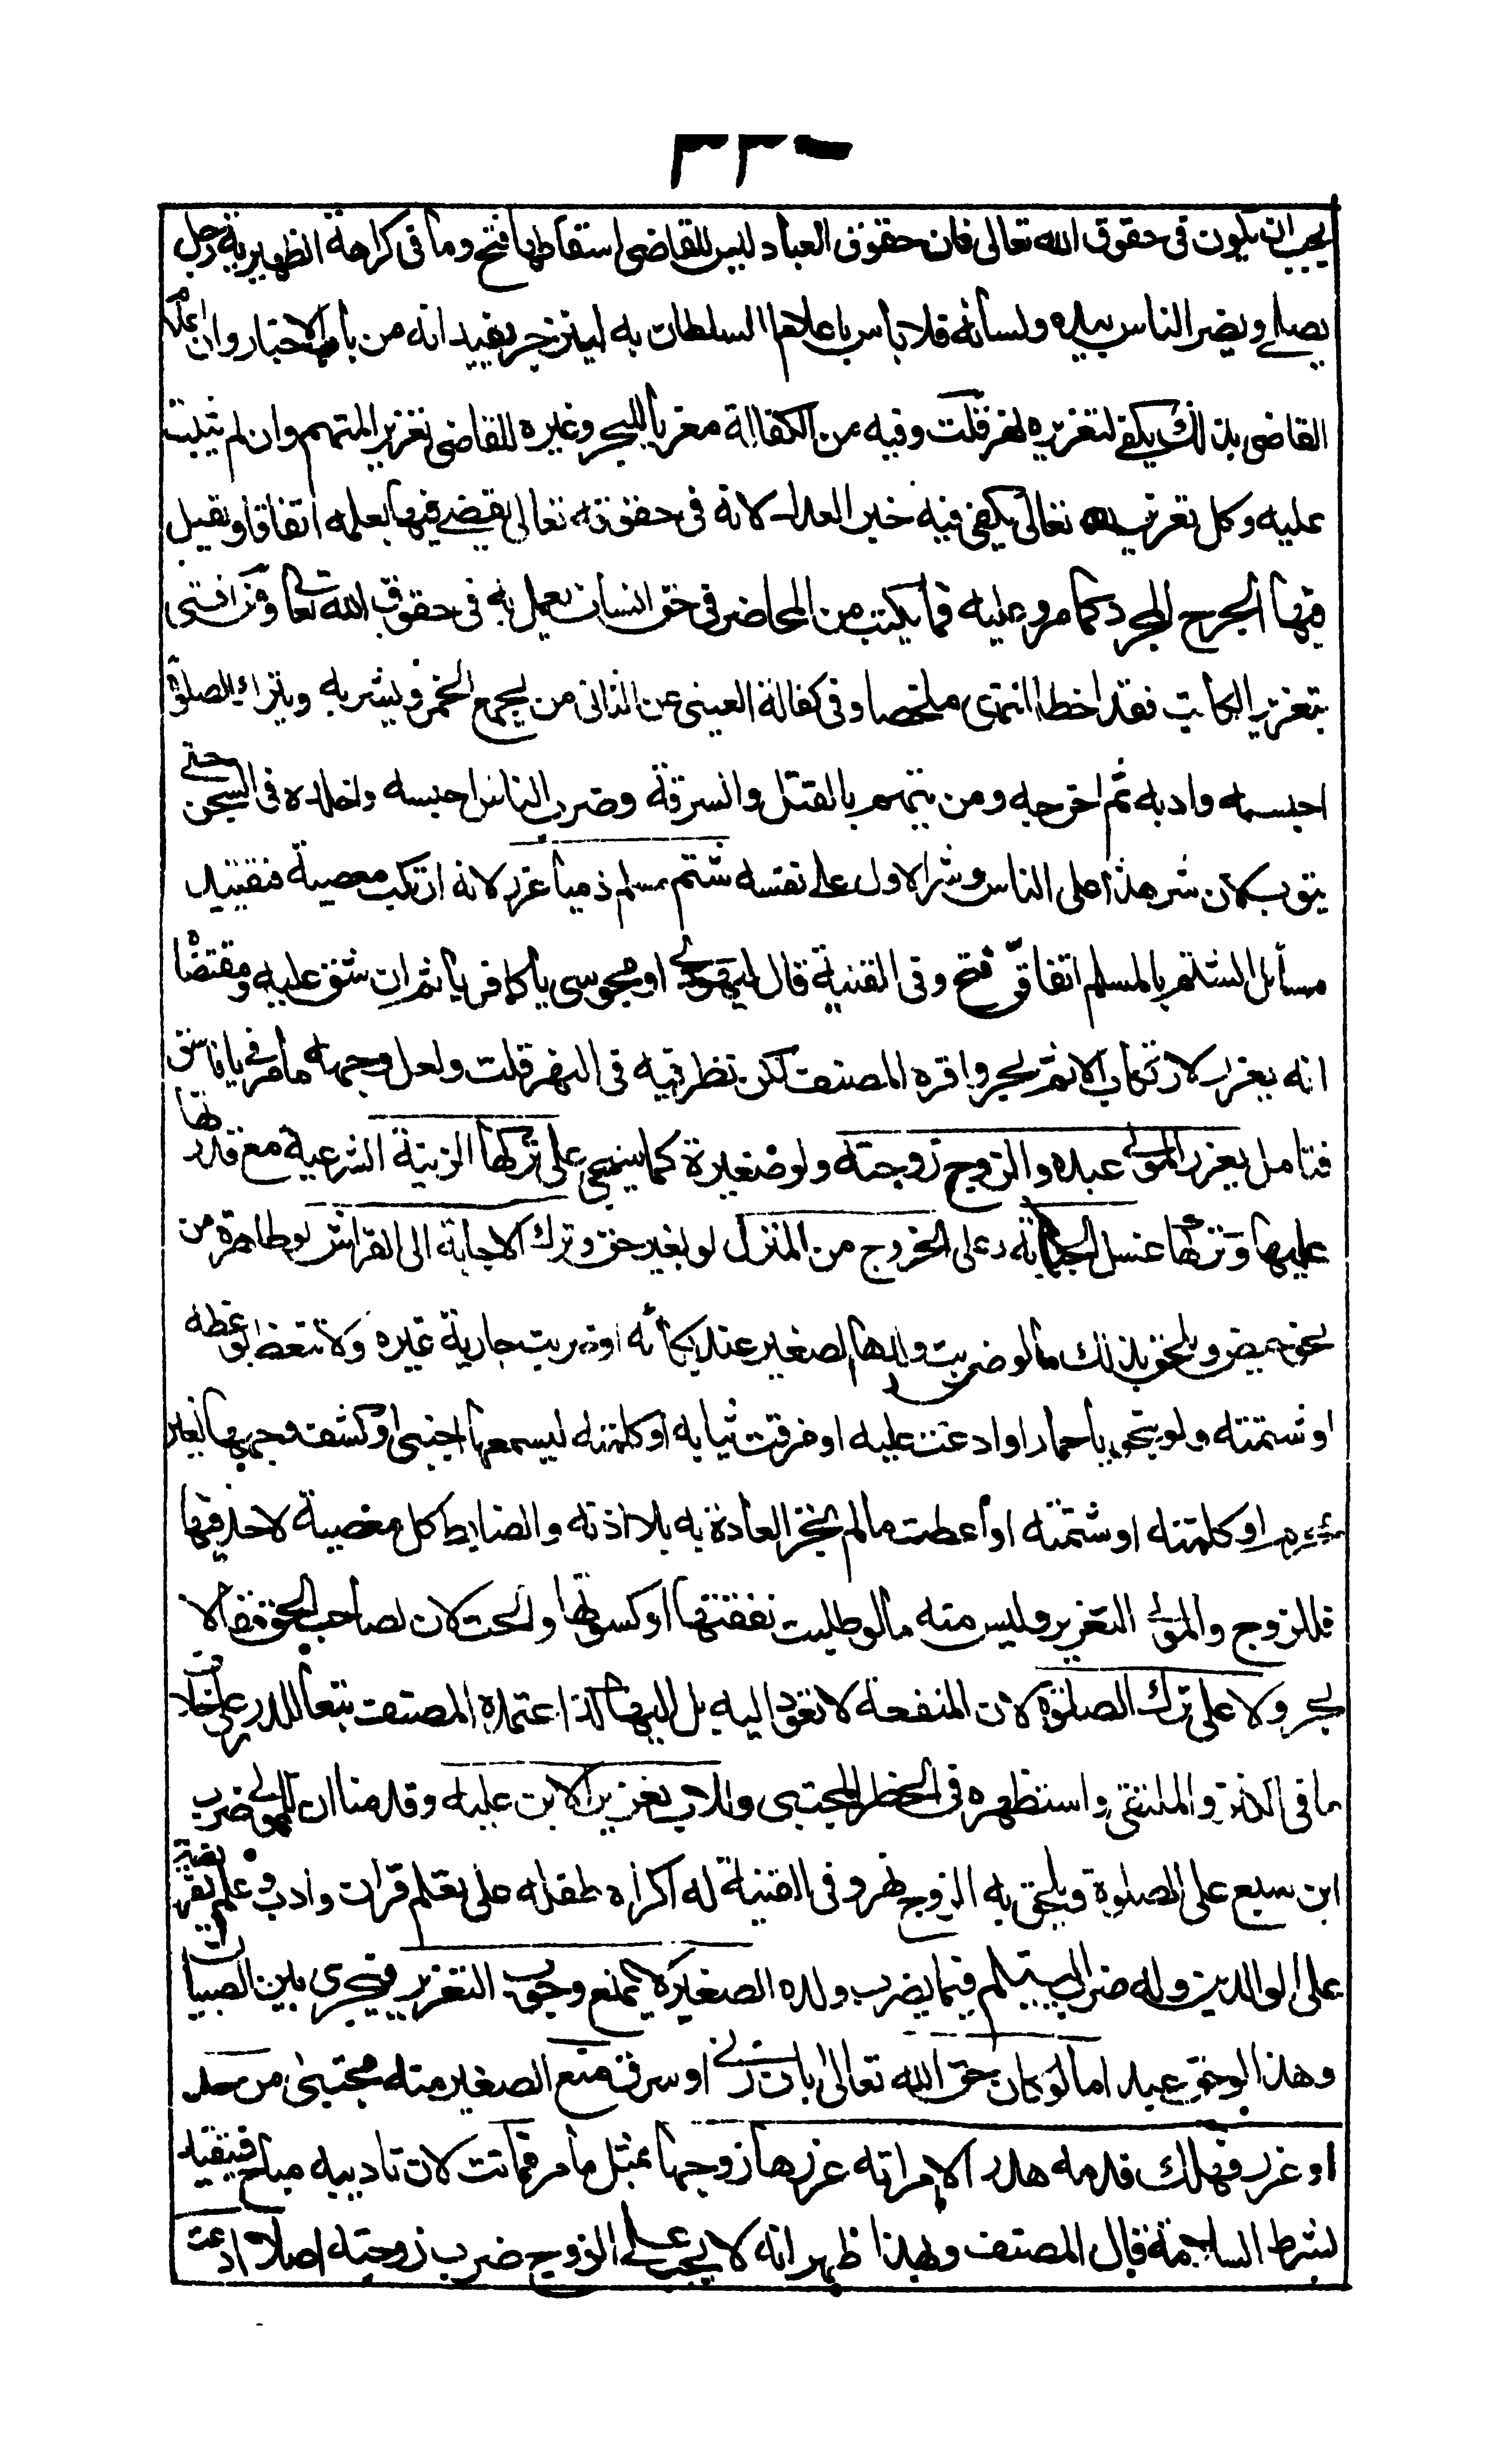 يجب ان يكون فى حقوق الله تعالى فان حقوق العباد ليس للقاضى اسقاطها فتح وما فى كراهة الظهيرية رجل
يصلى ويضر الناس بيده ولسانه فلا باس باعلام السلطان به لينزجر يفيد انه من باب الاخبار وان اعلام
القاضى بذلك يكفى لتعزيره نهر قلت وفيه من الكفالة معزيا للبحر وغيره للقاضى تعزير المتهم وان لم يثبت
عليه وكل تعزير لله تعالى يكفى فيه خبر العدل لانه فى حقوقه تعالى يقضى فيها بعلمه اتفاقا ويقبل
فيها الجرح المجرد كما مر وعليه فما يكتب من المحاضر فى حق انسان يعمل به فى حقوق الله تعالى ومن افتى
بتعزير الكاتب فقد اخطا انتهى ملخصا وفى كفالة العينى عن الثانى من يجمع الخمر ويشربه ويترك الصلوة
احبسه وادبه ثم اخرجه ومن يتهم بالقتل والسرقة وضرب الناس احبسه واخلده فى السجن حتى
يتوب لان شر هذا على الناس وشر الاول على نفسه شتم مسلم ذميا عزر لانه ارتكب معصية فتقييد
مسائل الشتم بالمسلم اتفاقى فتح وفى القنية قال ليهودى او مجوسى يا كافر ياثم ان شق عليه ومقتضاه
انه يعزر لارتكاب الاثم بحر واقره المصنف لكن نظر فيه فى النهر قلت ولعل وجهه ما مر فى يا فاسق
فتامل يعزر المولى عبده والزوج زوجته ولو صغيرة كما سيجئ على تركها الزينة الشرعية مع قدرتها
عليها وتركها غسل الجنابة وعلى الخروج من المنزل لو بغير حق وترك الاجابة الى الفراش لو طاهرة من
نحو حيض ويلحق بذلك ما لو ضربت ولدها الصغير عند بكائه او ضربت جارية غيره ولا تتعظ بوعظه
او شتمته ولو بنحو يا حمار او ادعت عليه او مزقت ثيابه او كلمته ليسمعها اجنبى او كشفت وجهها لغير
محرم او كلمته او شتمته او اعطت ما لم تجز العادة به بلا اذنه والضابط كل معصية لا حد فيها
فللزوج والمولى التعزير وليس منه ما لو طلبت نفقتها او كسوتها والحت لان لصاحب الحق مقالا
بحر ولا على ترك الصلوة لان المنفعة لا تعود اليه بل اليها كذا اعتمده المصنف تبعا للدرر على خلاف
ما فى الكنز والملتقى واستظهره فى الحظر المجتبى وللاب تعزير الابن عليه وقدمنا ان للمولى ضرب
ابن سبع على الصلوة ويلحق به الزوج نهر وفى القنية له اكراه طفله على تعلم قران وادب وعلم لفريضته
على الوالدين وله ضرب اليتيم فيما يضرب ولده الصغر لا يمنع وجوب التعزير فيجرى بين الصبيان
وهذا لو حق عبد اما لو كان حق الله تعالى بان زنى او سرق منع الصغر منه مجتبى من حد
او عزر فهلك فدمه هدر الا امراته عزرها زوجها بمثل ما مر فماتت لان تاديبه مباح فيتقيد
بشرط السلامة قال المصنف وبهذا ظهر انه لا يجب على الزوج ضرب زوجته اصلا ادعت